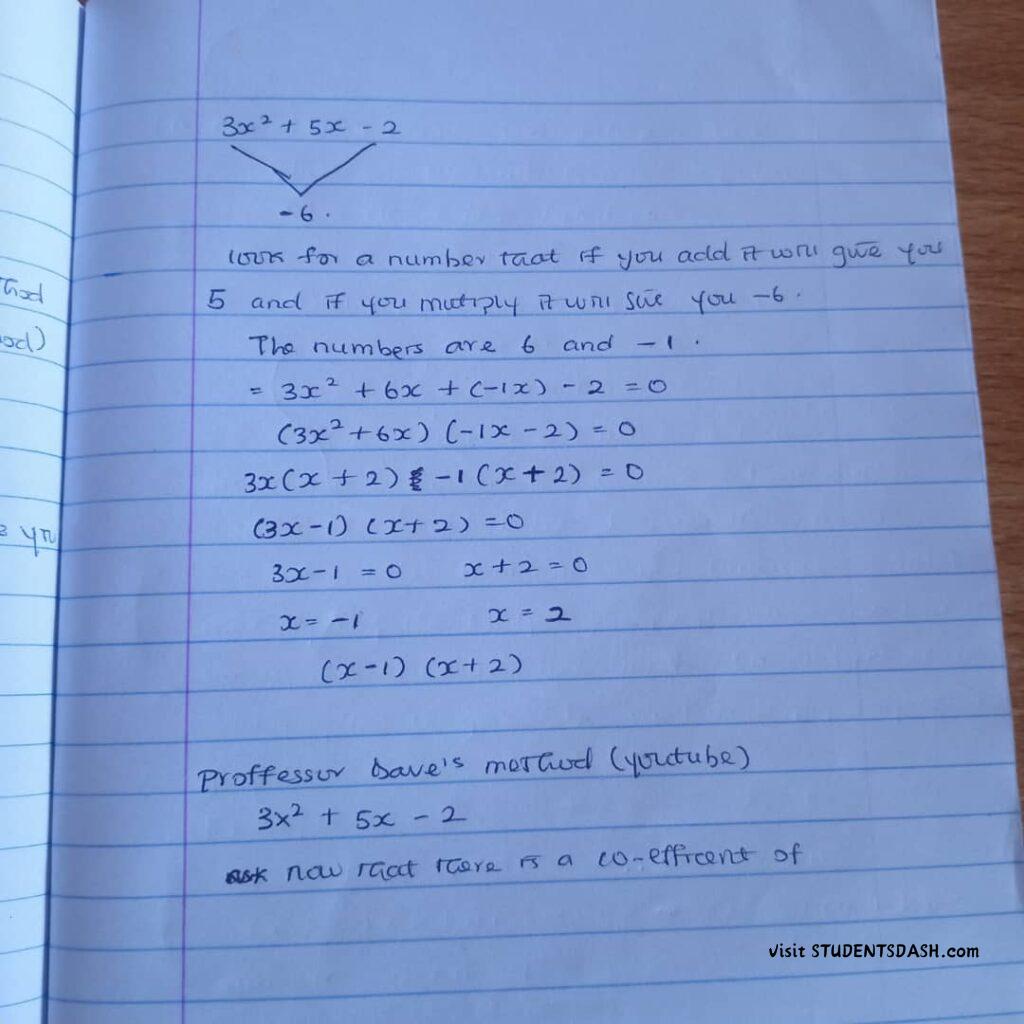 3x² + 5x - 2
-6.
look for a number that if you add it will give you
thod
5 and if you multiply it will give you -6.
od)
The numbers are 6 and -1.
= 3x² + 6x + (-1x) - 2 = 0
(3x² + 6x) (-1x - 2) = 0
3x(x + 2) -1(x + 2) = 0
(3x-1) (x+2) = 0
3x-1 = 0 x+2 = 0
x = -1 x = 2
(x-1) (x+2)
Proffessor Dave's method (youtube)
3x² + 5x - 2
ask now that there is a co-efficent of
visit STUDENTSDASH.com